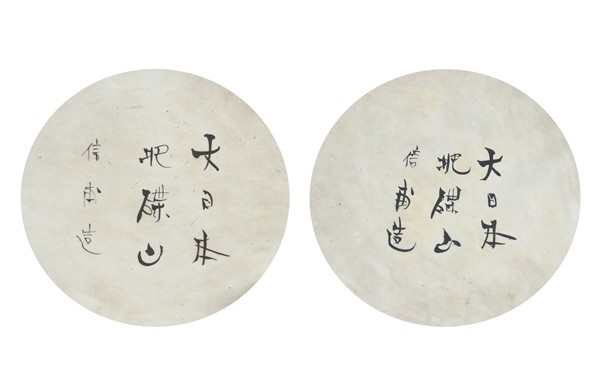 大日本
肥碟山
信甫造
大日本
肥碟山
信甫造